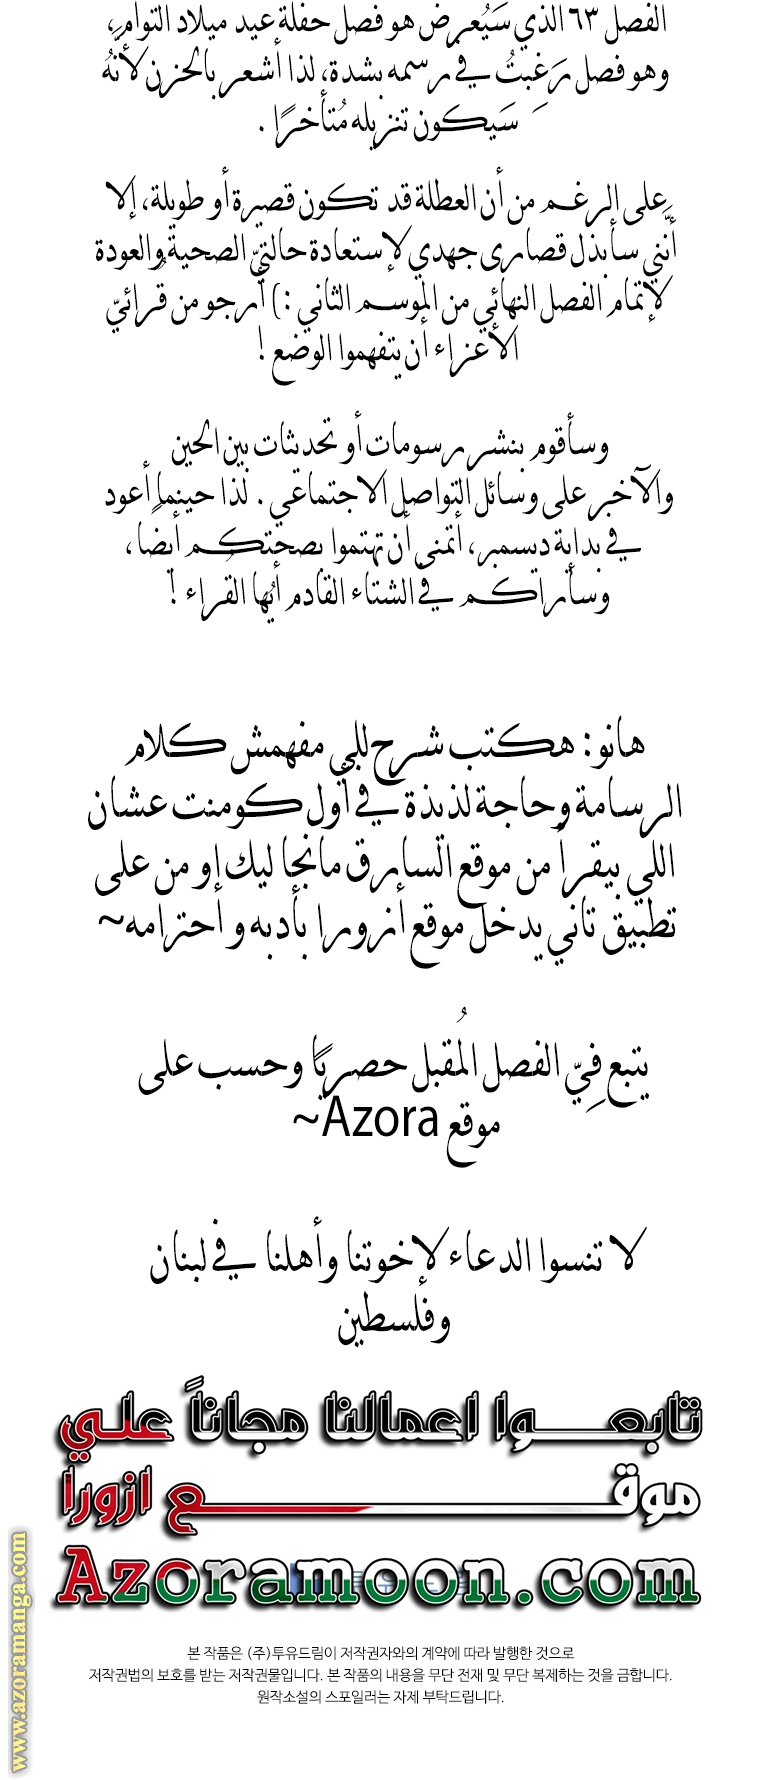 الفصل ٦٣ الذي سَيُعرض هو فصل حفلة عيد ميلاد التوأم،
وهو فصل رَغِبتُ في رسمه بشدة، لذا أشعر بالحزن لأنَّهُ
سَيكون تنزيله مُتأخرًا .
على الرغم من أن العطلة قد تكون قصيرة أو طويلة، إلا
أنَّني سأبذل قصارى جهدي لإستعادة حالتيّ الصحية والعودة
لإتمام الفصل النهائي من الموسم الثاني :) أرجو من قُرائيّ
الأعزاء أن يتفهموا الوضع !
وسأقوم بنشر رسومات أو تحديثات بين الحين
والآخر على وسائل التواصل الاجتماعي . لذا حينما أعود
في بداية ديسمبر، أتمنى أن تهتموا بصحتكم أيضًا،
وسأراكم في الشتاء القادم أيُها القراء !
هانو: هكتب شرح للي مفهمش كلام
الرسامة وحاجة لذيذة في أول كومنت عشان
اللي بيقرأ من موقع السارق مانجا ليك او من على
تطبيق تاني يدخل موقع أزورا بأدبه و احترامه~
يتبع فِيّ الفصل المُقبل حصريًا وحسب على
موقع Azora~
لا تنسوا الدعاء لإخوتنا وأهلنا في لبنان
وفلسطين
تابعـــوا اعمالنا مجاناً علي
موقـــــــــع ازورا
Azoramoon.com
www.azoramanga.com
본 작품은 (주)투유드림이 저작권자와의 계약에 따라 발행한 것으로
저작권법의 보호를 받는 저작권물입니다. 본 작품의 내용을 무단 전재 및 무단 복제하는 것을 금합니다.
원작소설의 스포일러는 자제 부탁드립니다.